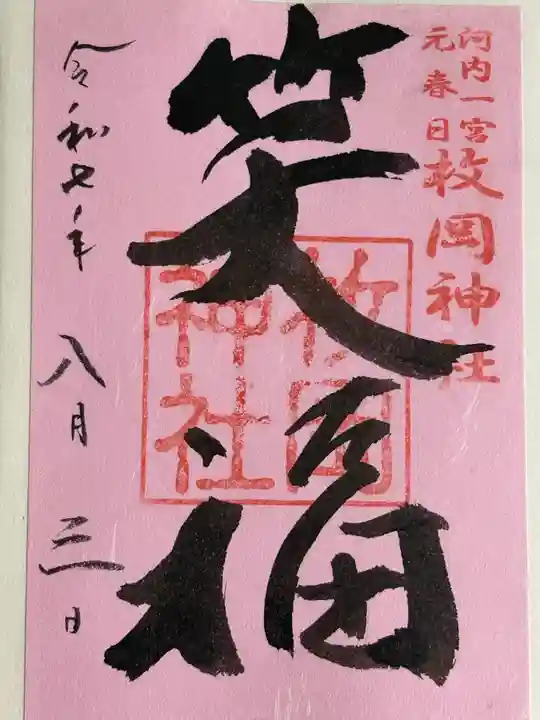 河内一宮
元春日
枚岡神社
笑福
枚岡
神社
令和七年 八月 三日